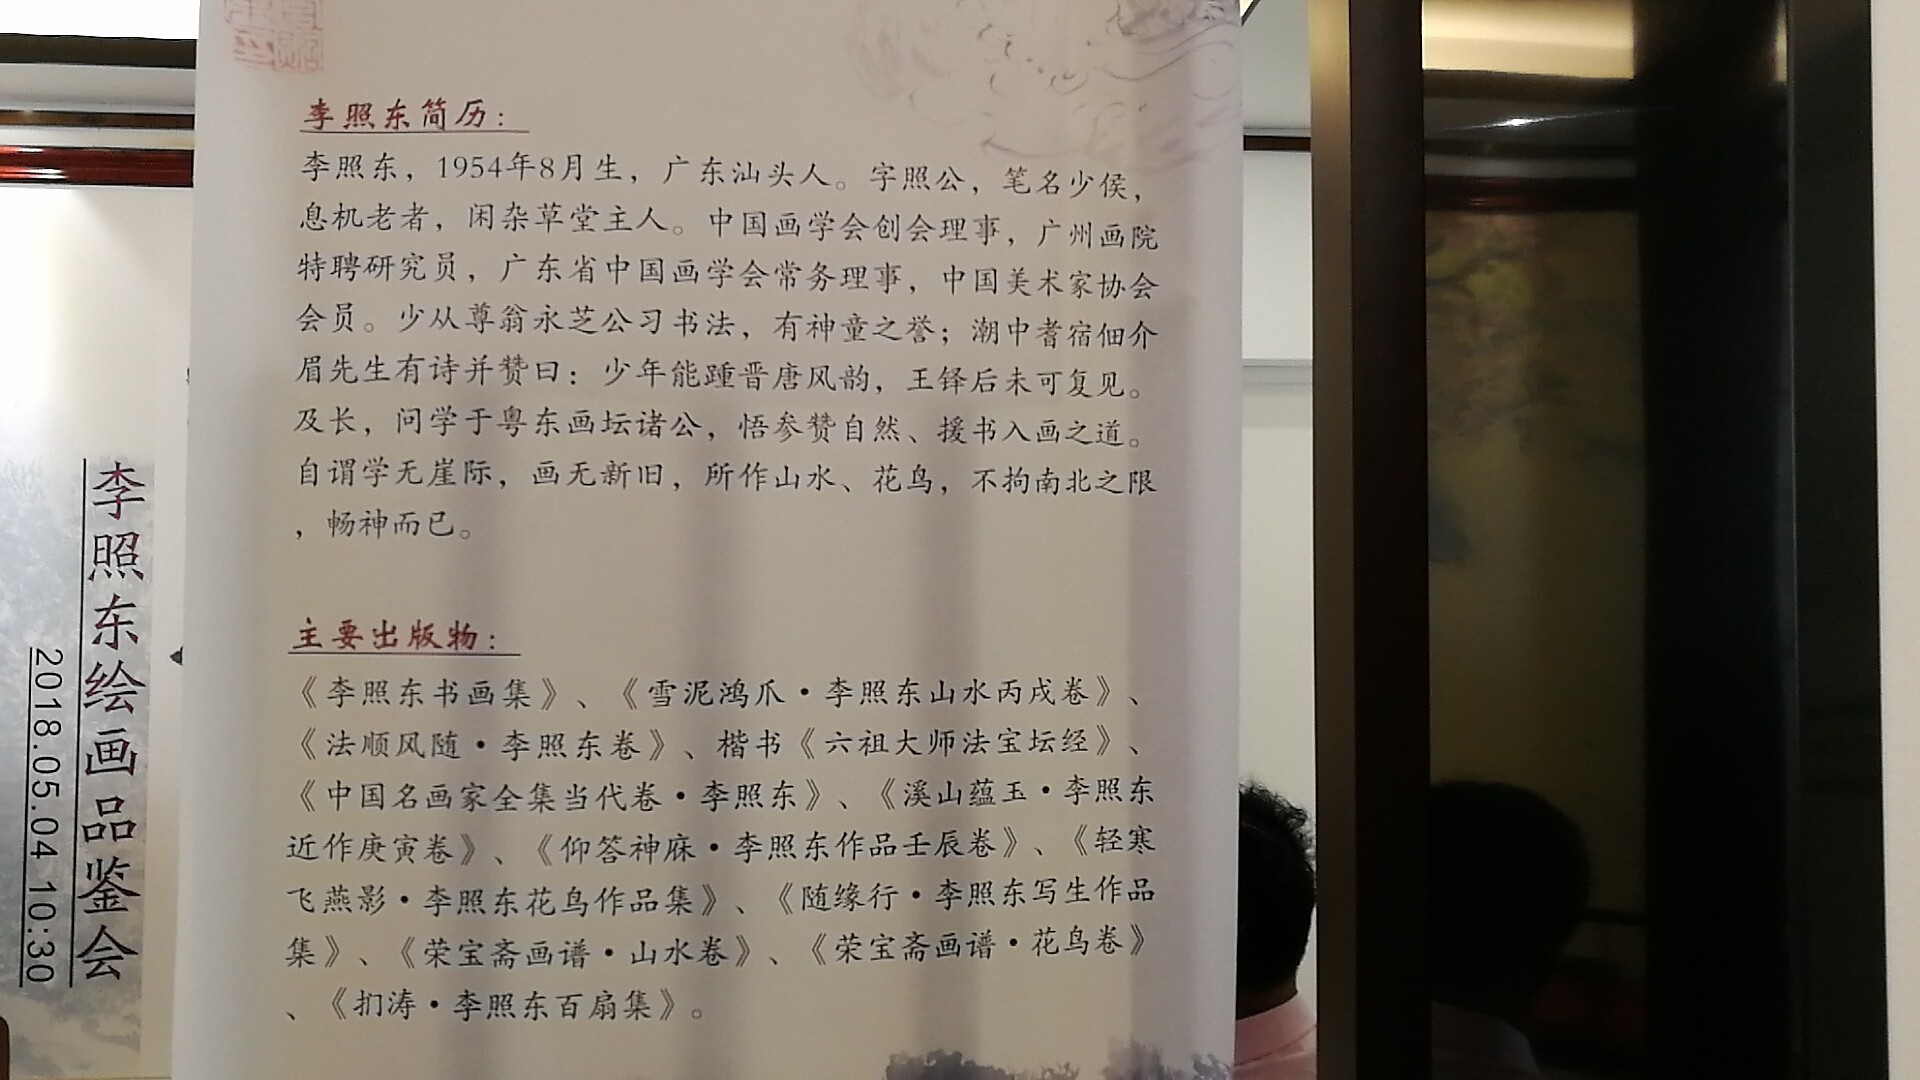 李照东简历：
李照东，1954年8月生，广东汕头人。字照公，笔名少侯，
息机老者，闲杂草堂主人。中国画学会创会理事，广州画院
特聘研究员，广东省中国画学会常务理事，中国美术家协会
会员。少从尊翁永芝公习书法，有神童之誉；潮中耆宿佃介
眉先生有诗并赞曰：少年能踵晋唐风韵，王铎后未可复见。
及长，问学于粤东画坛诸公，悟参赞自然、援书入画之道。
自谓学无崖际，画无新旧，所作山水、花鸟，不拘南北之限
，畅神而已。
主要出版物：
《李照东书画集》、《雪泥鸿爪·李照东山水丙戌卷》、
《法顺风随·李照东卷》、楷书《六祖大师法宝坛经》、
《中国名画家全集当代卷·李照东》、《溪山蕴玉·李照东
近作庚寅卷》、《仰答神庥·李照东作品壬辰卷》、《轻寒
飞燕影·李照东花鸟作品集》、《随缘行·李照东写生作品
集》、《荣宝斋画谱·山水卷》、《荣宝斋画谱·花鸟卷》
、《扪涛·李照东百扇集》。
李照东绘画品鉴会
2018.05.04 10:30